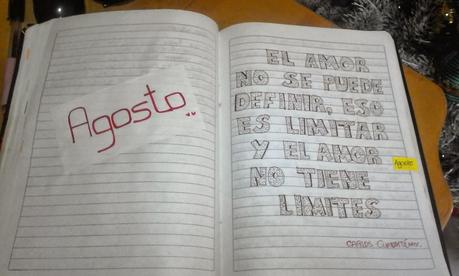 Agosto
EL AMOR
NO SE PUEDE
DEFINIR, ESO
ES LIMITAR
Y EL AMOR
NO TIENE
LIMITES
Agosto
CARLOS